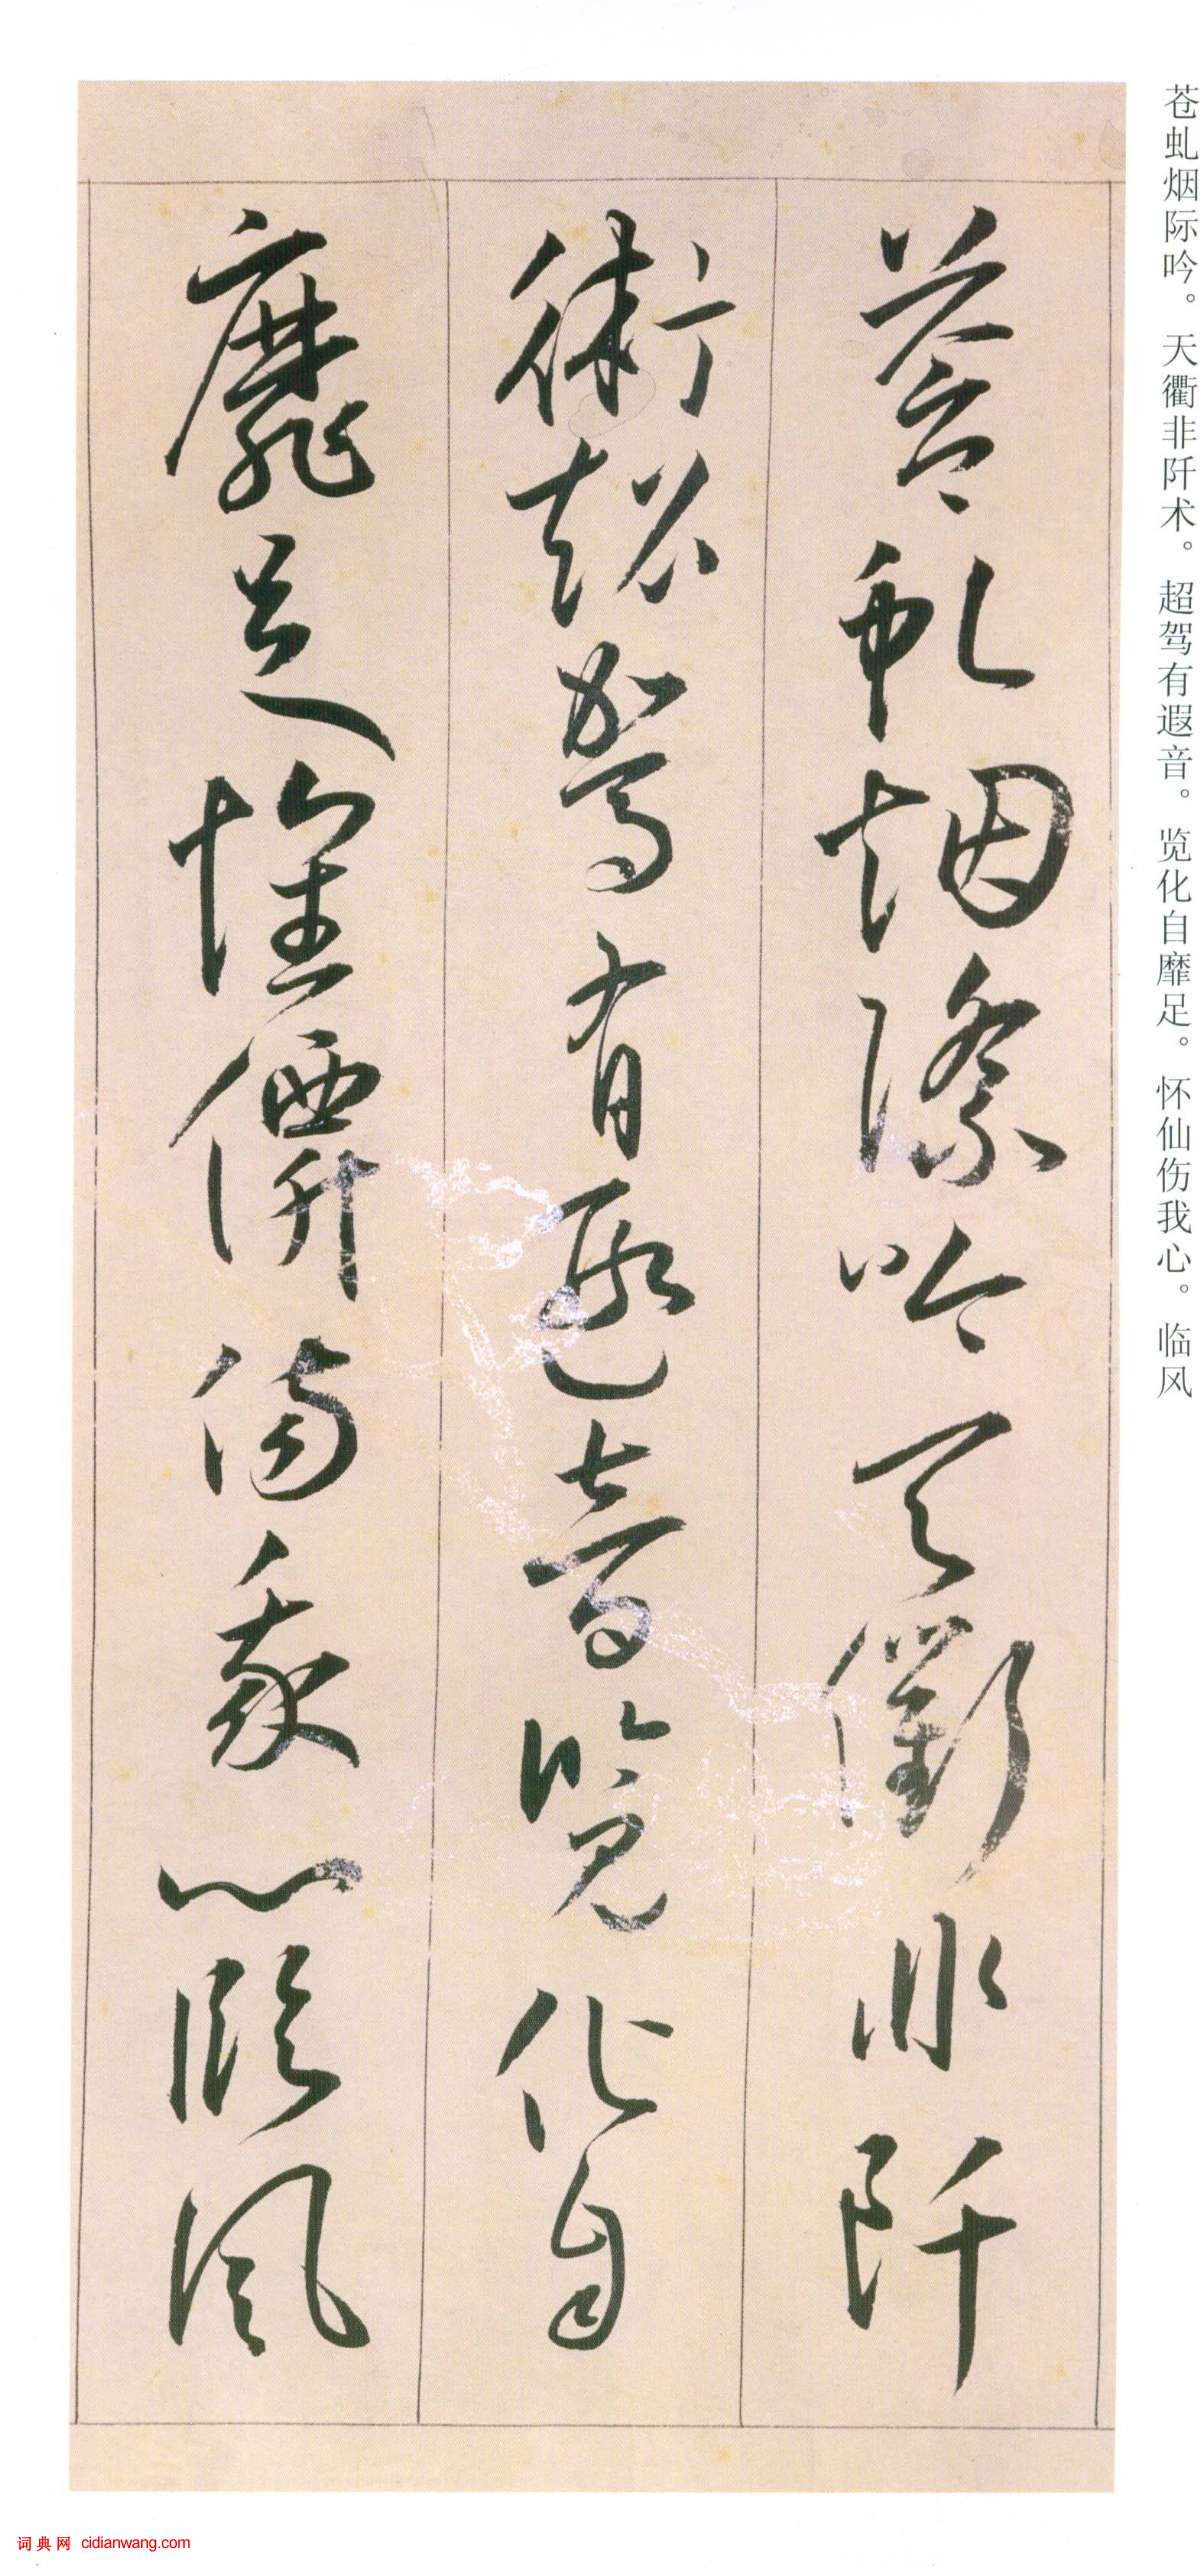 苍虬烟际吟。天衢非阡术。超驾有遐音。览化自靡足。怀仙伤我心。临风
蒼虬烟際吟天衢非阡
術超駕有遐音覧化自
靡足懐僊傷我心臨風
词典网 cidianwang.com